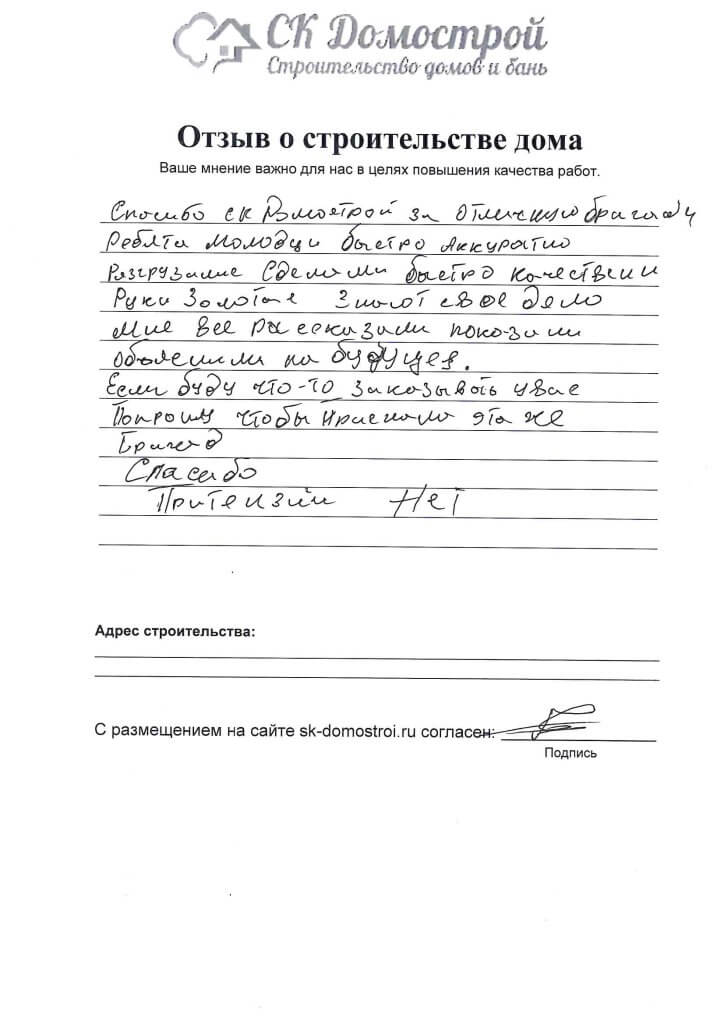 СК Домострой
Строительство домов и бань
Отзыв о строительстве дома
Ваше мнение важно для нас в целях повышения качества работ.
Спосибо ск Домострой за отличную бригаду
Ребята молодци быстро Аккуратно
Разгрузили Сделали быстро качествен
Руки Золотые Знают свое дело
Мне все рассказали показали
Обьяснили на будущее.
Если буду что-то заказывать у вас
Попрошу чтобы прислали эта же
Бригад
Спасибо
Притензий Нет
Адрес строительства:
С размещением на сайте sk-domostroi.ru согласен:
Подпись